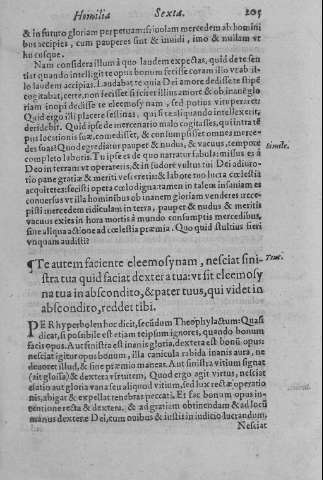 Homilia Sexta. 205
& in futuro gloriam perpetuam: si uolam mercedem ab homini
bus accipies, cum pauperes sint & inuidi, imo & nullam vs
hu cusque.
Nam considera illum à quo laudem expectas, quid de te sen
tiet quando intelligit te opus bonum fecisse coram illo vt ab il
lo laudem accipias. Laudabat te quia Dei amore dedisse te stipē
cogitabat, certe non fecisset si sciret illius amore & ob inanē glo
riam inopi dedisse te eleemosynam, sed potius vituperaret
Quid ergo illi placere festinas, qui si res aliquando intellexerit
deridebit. Quid ipse de mercenario nulo cogitasses, qui intra tē
pus locationis suæ, comedisset, & consumpsisset omnes merce-
des suas: Quod egrediatur pauper & nudus, & vacuus, tempore
completo laboris. Tu ipse es de quo narratur fabula: missus es à
Deo in terram vt opereris, & in sudore vultus tui Dei adiuto-
rio pane gratiæ & meriti vescereris: & labore tuo lucra cœlestia
acquireres: fecisti opera cœlo digna: tamen in talem insaniam es
conuersus vt illa hominibus ob inanem gloriam venderes
precepisti mercedem ridiculam in terra, pauper & nudus & meritis
vacuus exies in hora mortis à mundo consumptis mercedibus,
sine aliqua actione ad cœlestia præmia. Quo quid stultius fieri
vnquam audisti?
Simile.
¶ Te autem faciente eleemosynam, nesciat sini-
stra tua quid faciat dextera tua: vt sit eleemosy
na tua in abscondito, & pater tuus, qui videt in
abscondito, reddet tibi.
Text.
PER hyperbolen hoc dicit, secūdum Theophylactum: Quasi
dicat, si possibile est etiam teipsum ignores, quando bonum
facis opus. Aut sinistra est inanis gloria, dextera est bonū opus:
nesciat igitur opus bonum, illa canicula rabida inanis aura, ne
deuoret illud, & sine præmio maneas. Aut sinistra vitium signat
(ait glossa) & dextera virtutem, Quod ergo agit virtus, nesciat
elatio aut gloria vana seu aliquod vitium, sed lux rectæ operatio
nis, abigat & expellat tenebras peccati. Et fac bonum opus in-
tentione recta & dextera, & ad gratiam obtinendam & ad locū
manus dexteræ Dei, cum ouibus & iustis in iudicio lucrandum,
Nesciat